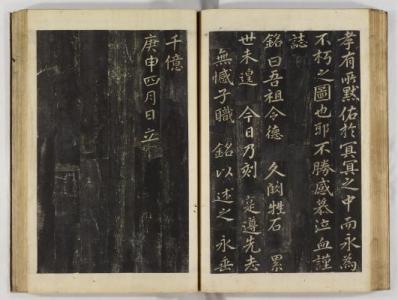 孝有所默佑於冥冥之中而永爲
不朽之圖也耶不勝感慕泣血謹
誌
銘曰吾祖令德 久閟牲石 累
世未遑 今日乃刻 寔遵先志
無憾子職 銘以述之 永垂
千億
庚申四月日立